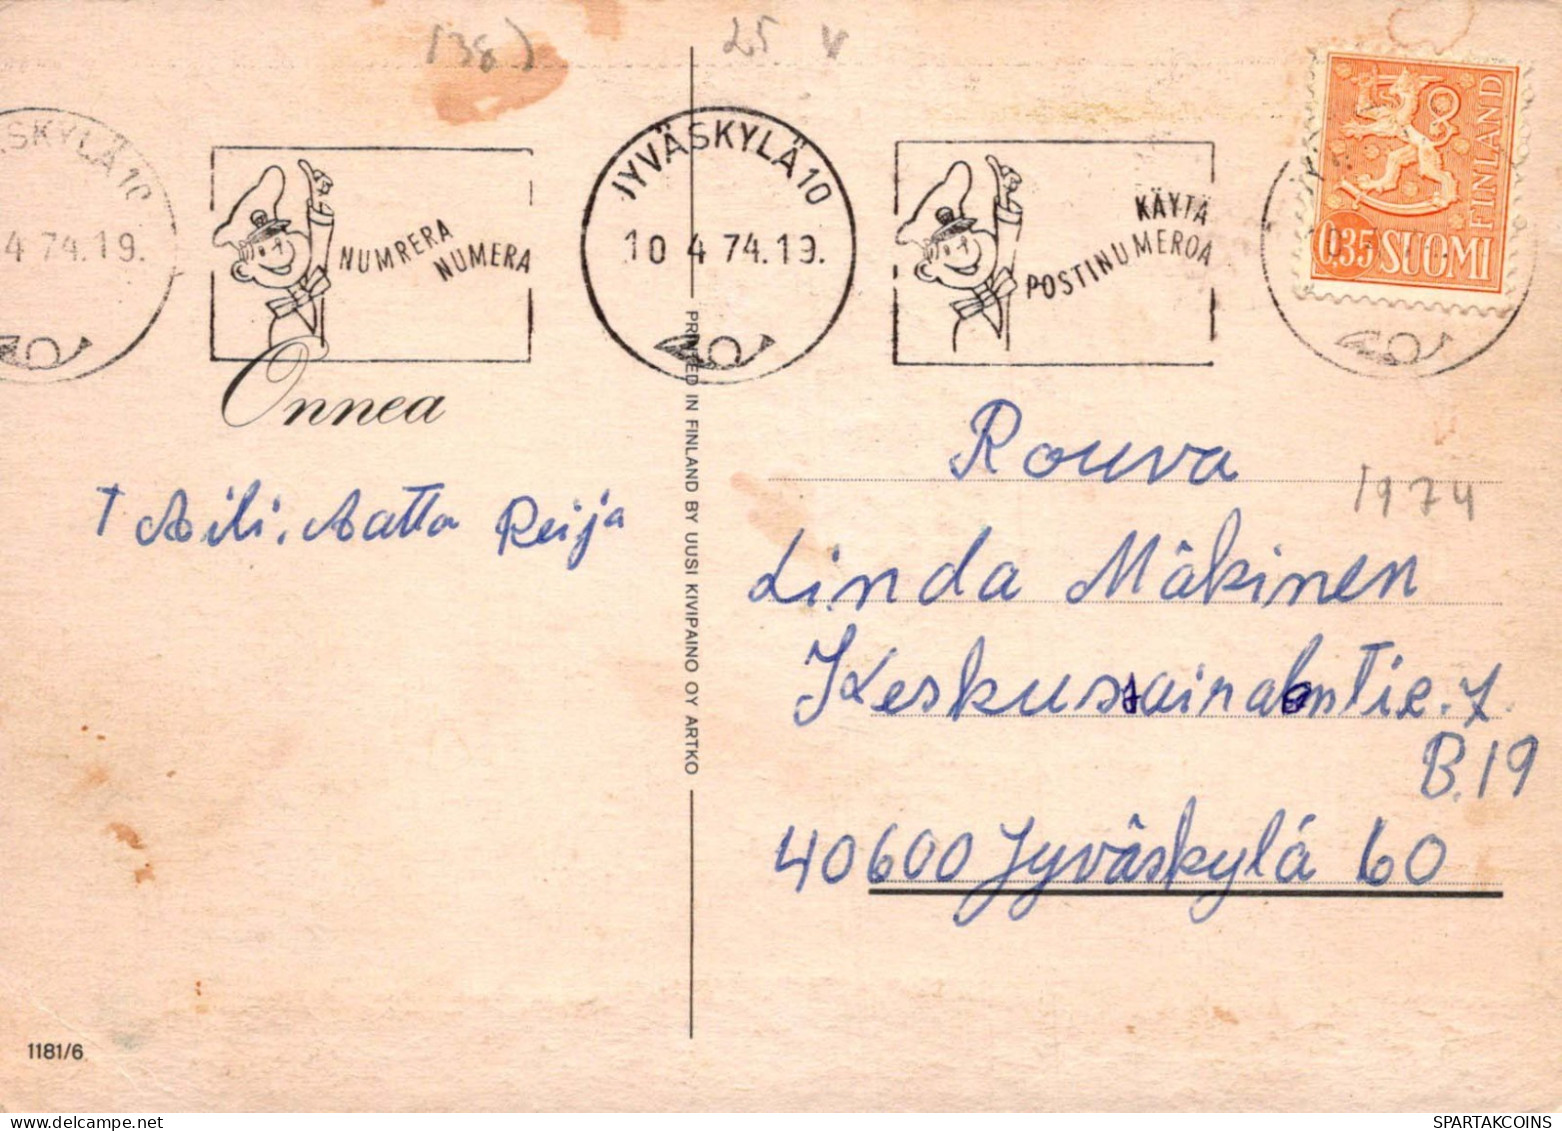 138)
25 v
ÄSKYLÄ 10
4 74.19.
NUMRERA
NUMERA
JYVÄSKYLÄ 10
10 4 74.19.
KÄYTÄ
POSTINUMEROA
FINLAND
0,35 SUOMI
Onnea
T Aili, Aatto Reija
PRINTED IN FINLAND BY UUSI KIVIPAINO OY ARTKO
Rouva
1974
Linda Mäkinen
Keskussairalantie.
B.19
40600 Jyväskylä 60
1181/6
SPARTAKCOINS